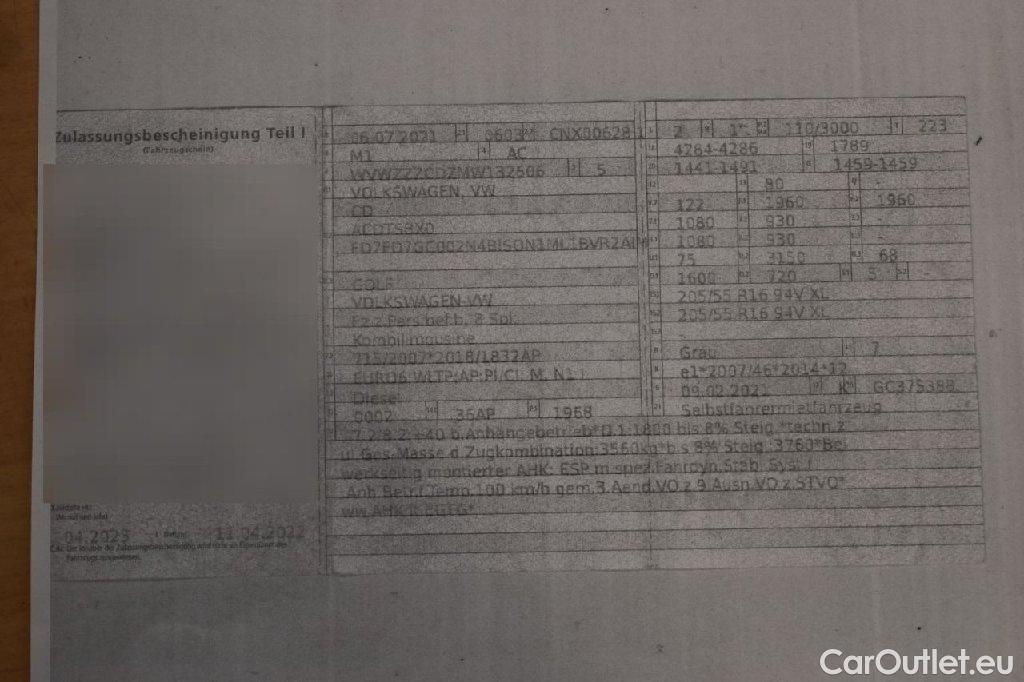 Zulassungsbescheinigung Teil I
(Fahrzeugschein)
06.07.2021 0603 CNX00628 1
M1 AC
WVWZZZCDZMW132506 5
VOLKSWAGEN, VW
CD
ACDTSBX0
GOLF
VOLKSWAGEN-VW
Fz.z.Pers.bef.b. 8 Spl.
Kombilimousine
715/2007*2018/1832AP
EURO6 WLTP;AP;PI/CI; M, N1 I
Diesel
0002 36AP 1968
2 1 110/3000 223
4284-4286 1789
1441-1491 1459-1459
- 90 -
122 1960 1960
1080 930 -
1080 930 -
75 3150 68
1600 720 5 -
205/55 R16 94V XL
205/55 R16 94V XL
-
Grau 7
e1*2007/46*2014*12
09.02.2021 K GC375388
Selbstfahrermietfahrzeug
7.2/8.2:+40 b.Anhängebetrieb*O.1:1800 bis 8% Steig.*techn.z
ul.Ges.Masse d.Zugkombination:3560kg*bis 8% Steig.:3760*Bei
werkseitig montierter AHK: ESP m.spez.Fahrdyn.Stabi.Syst.f.
Anh.Betr.f.Temp.100 km/h gem.3.Aend.VO z.9.Ausn.VO z.STVO*
ww.AHK lt.EGTG*
04.2023 11.04.2022
CarOutlet.eu